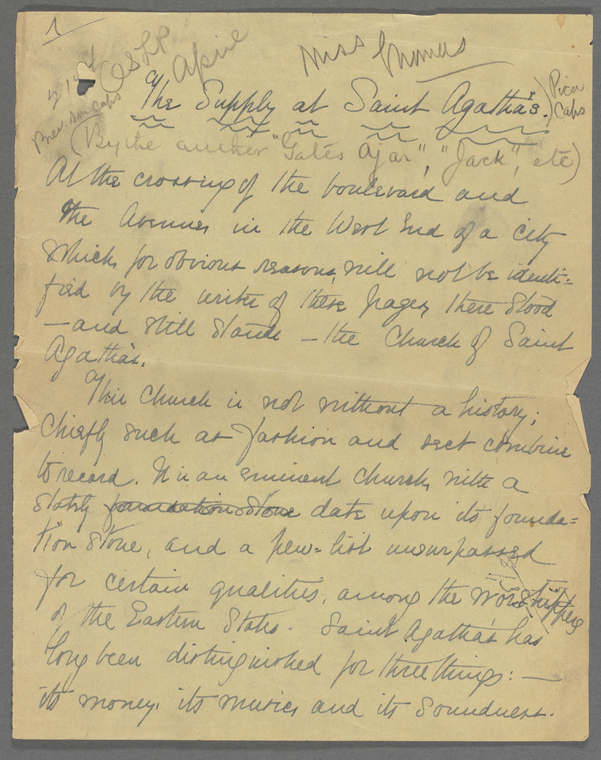 1
April
Miss
The Supply at Saint Agatha's.
Pica
Caps
(By the author "Gates Ajar", "Jack", etc)
At the crossing of the boulevard and
the Avenues in the West End of a city
which, for obvious reasons, will not be identi=
fied by the writer of these pages, there stood
—and still stands — the Church of Saint
Agatha's.
This Church is not without a history;
chiefly such as fashion and sect combine
to record. It is an eminent church, with a
stately foundation stone date upon its founda=
tion stone, and a pew=list unsurpassed
for certain qualities, among the worshippers
of the Eastern States. Saint Agatha's has
long been distinguished for three things: —
its money, its music, and its soundness.